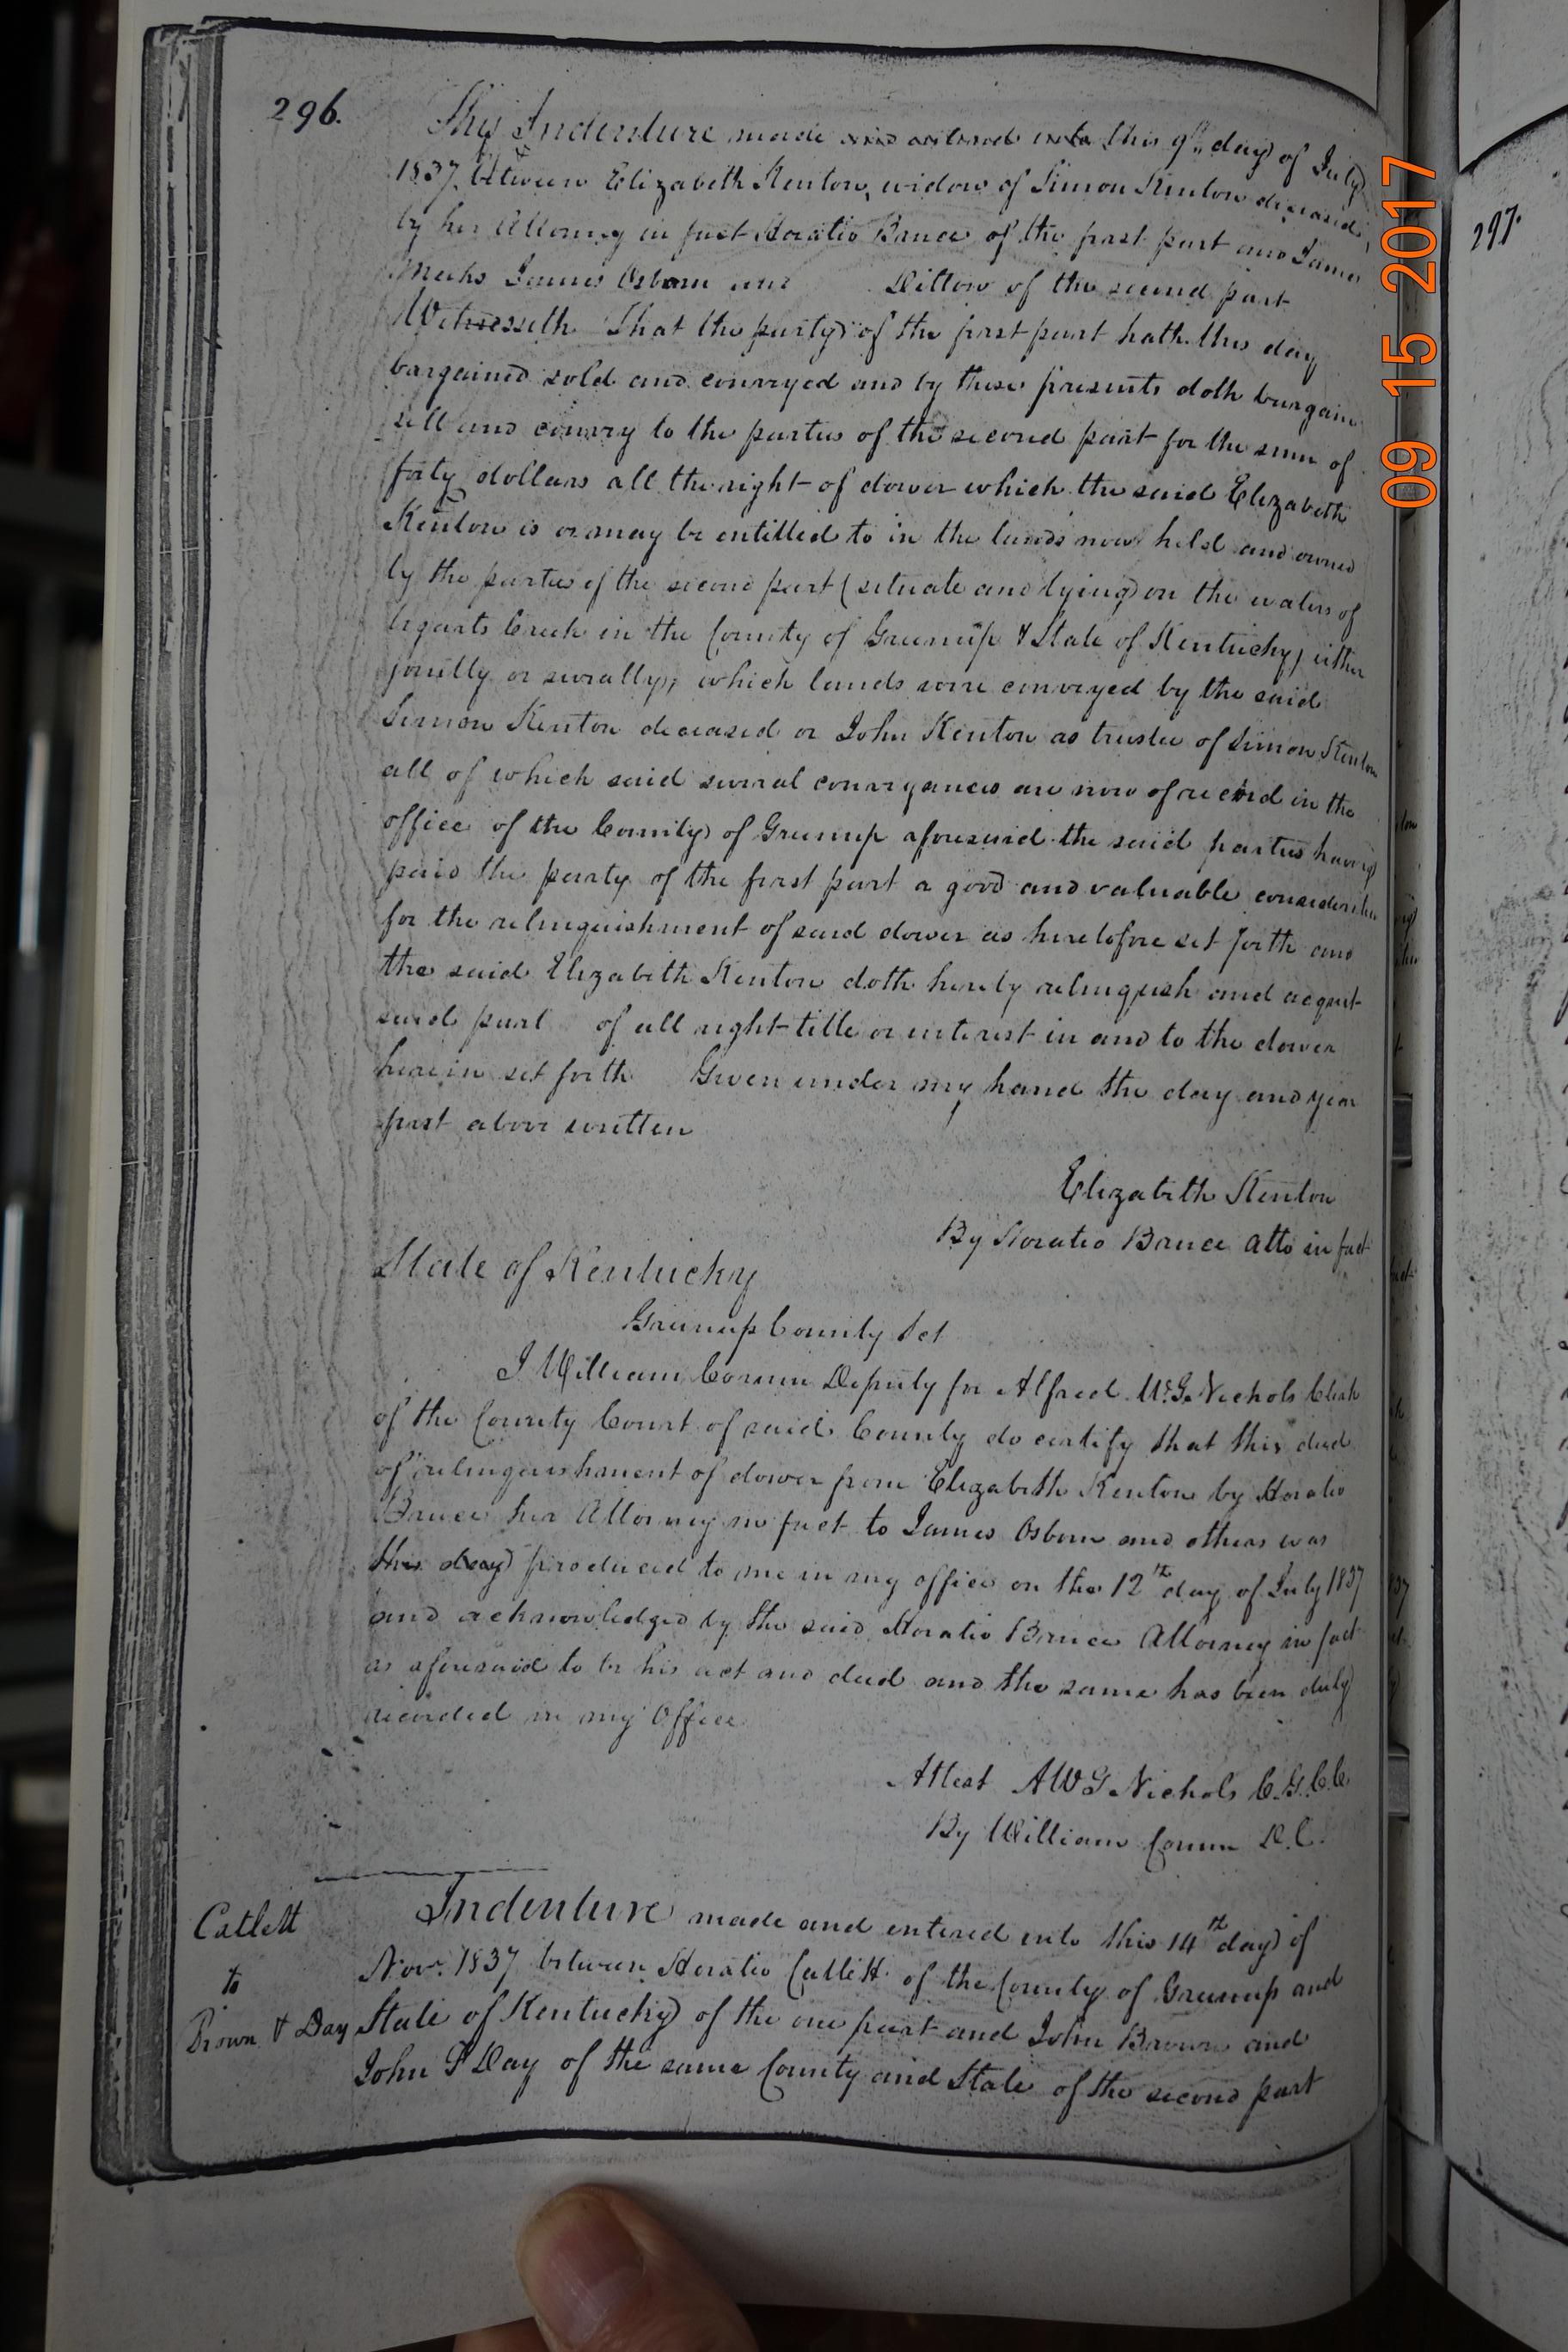 296.
This Indenture made and entered into this 9th day of July
1837 between Elizabeth Kenton, widow of Simon Kenton deceased,
by her Attorney in fact Horatio Bruce of the first part and James
Meeks James Osborn and Dillow of the second part
Witnesseth That the party of the first part hath this day
bargained sold and conveyed and by these presents doth bargain
sell and convey to the parties of the second part for the sum of
forty dollars all the right of dower which the said Elizabeth
Kenton is or may be entitled to in the lands now held and owned
by the parties of the second part (situate and lying on the waters of
Tygarts Creek in the County of Greenup & State of Kentucky) either
jointly or severally, which lands were conveyed by the said
Simon Kenton deceased or John Kenton as trustee of Simon Kenton
all of which said several conveyances are now of record in the
office of the County of Greenup aforesaid the said parties having
paid the party of the first part a good and valuable consideration
for the relinquishment of said dower as heretofore set forth and
the said Elizabeth Kenton doth hereby relinquish and acquit
said part of all right title or interest in and to the dower
herein set forth Given under my hand the day and year
first above written
Elizabeth Kenton
By Horatio Bruce Atto in fact
State of Kentucky
Greenup County Sct
I William Corum Deputy for Alfred W. G. Nichols Clerk
of the County Court of said County do certify that this deed
of relinquishment of dower from Elizabeth Kenton by Horatio
Bruce her Attorney in fact to James Osborn and others was
this day produced to me in my office on the 12th day of July 1837
and acknowledged by the said Horatio Bruce Attorney in fact
as aforesaid to be his act and deed and the same has been duly
recorded in my Office
Attest AWG Nichols C.G.C.C.
By William Corum D.C.
Catlett
to
Brown & Day
Indenture made and entered into this 14th day of
Nov. 1837 between Horatio Catlett of the County of Greenup and
State of Kentucky of the one part and John Brown and
John P Day of the same County and State of the second part
297.
09 15 2017